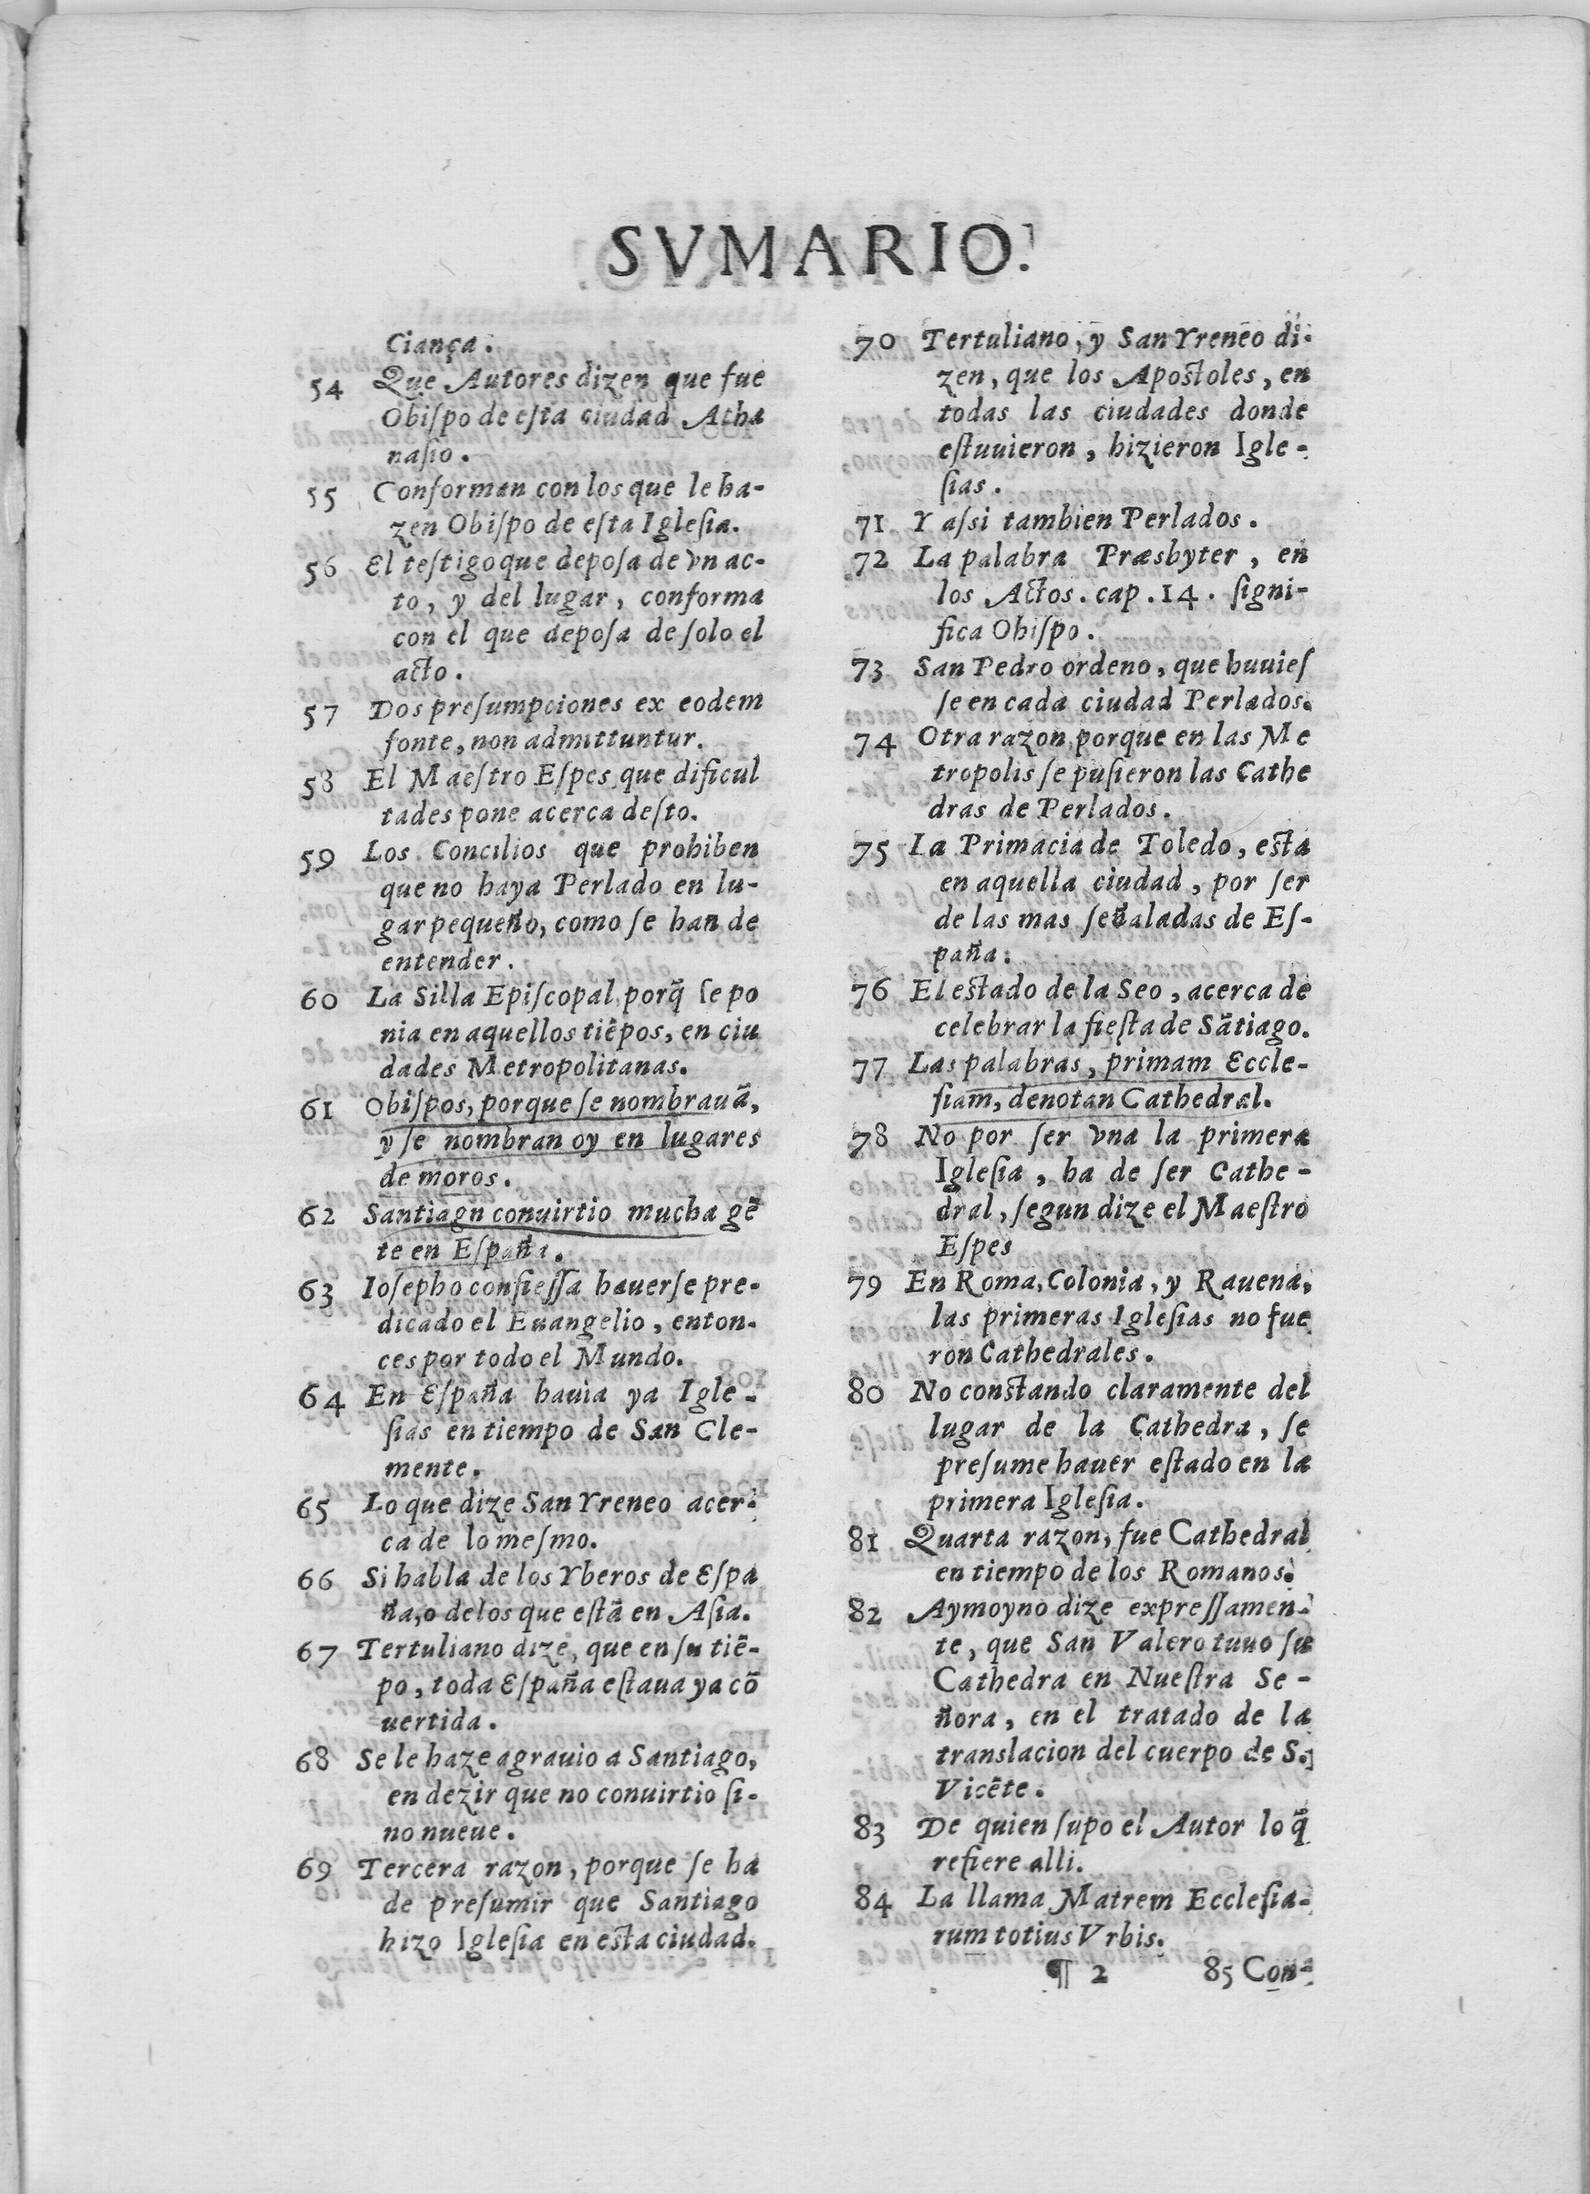 SVMARIO.
Ciança.
54 Que Autores dizen que fue
Obiſpo de eſta ciudad Atha
naſio.
55 Conforman con los que le ha-
zen Obiſpo de eſta Igleſia.
56 El teſtigo que depoſa de vn ac-
to, y del lugar, conforma
con el que depoſa de ſolo el
acto.
57 Dos preſumpciones ex eodem
fonte, non admittuntur.
58 El Maeſtro Eſpes que dificul
tades pone acerca deſto.
59 Los Concilios que prohiben
que no haya Perlado en lu-
gar pequeño, como ſe han de
entender.
60 La Silla Epiſcopal porq̃ ſe po
nia en aquellos tiẽpos, en ciu
dades Metropolitanas.
61 Obiſpos, porque ſe nombrauã,
y ſe nombran oy en lugares
de moros.
62 Santiagn conuirtio mucha gẽ
te en Eſpaña.
63 Ioſepho confieſſa hauerſe pre-
dicado el Euangelio, enton-
ces por todo el Mundo.
64 En Eſpaña hauia ya Igle-
ſias en tiempo de San Cle-
mente.
65 Lo que dize San Yreneo acer-
ca de lo meſmo.
66 Si habla de los Yberos de Eſpa
ña, o de los que eſtã en Aſia.
67 Tertuliano dize, que en ſu tiẽ-
po, toda Eſpaña eſtaua ya cõ
uertida.
68 Se le haze agrauio a Santiago,
en dezir que no conuirtio ſi-
no nueue.
69 Tercera razon, porque ſe ha
de preſumir que Santiago
hizo Igleſia en eſta ciudad.
70 Tertuliano, y San Yreneo di-
zen, que los Apoſtoles, en
todas las ciudades donde
eſtuuieron, hizieron Igle-
ſias.
71 Y aſsi tambien Perlados.
72 La palabra Præsbyter, en
los Actos. cap. 14. ſigni-
fica Obiſpo.
73 San Pedro ordeno, que huuieſ
ſe en cada ciudad Perlados.
74 Otra razon porque en las Me
tropolis ſe puſieron las Cathe
dras de Perlados.
75 La Primacia de Toledo, eſta
en aquella ciudad, por ſer
de las mas ſeñaladas de Eſ-
paña.
76 El eſtado de la Seo, acerca de
celebrar la fieſta de Sãtiago.
77 Las palabras, primam Eccle-
ſiam, denotan Cathedral.
78 No por ſer vna la primera
Igleſia, ha de ſer Cathe-
dral, ſegun dize el Maeſtro
Eſpes
79 En Roma, Colonia, y Rauena,
las primeras Igleſias no fue
ron Cathedrales.
80 No conſtando claramente del
lugar de la Cathedra, ſe
preſume hauer eſtado en la
primera Igleſia.
81 Quarta razon, fue Cathedral
en tiempo de los Romanos.
82 Aymoyno dize expreſſamen-
te, que San Valero tuuo ſu
Cathedra en Nueſtra Se-
ñora, en el tratado de la
translacion del cuerpo de S.
Vicẽte.
83 De quien ſupo el Autor lo q̃
refiere alli.
84 La llama Matrem Eccleſia-
rum totius Vrbis.
¶ 2 85 Con-